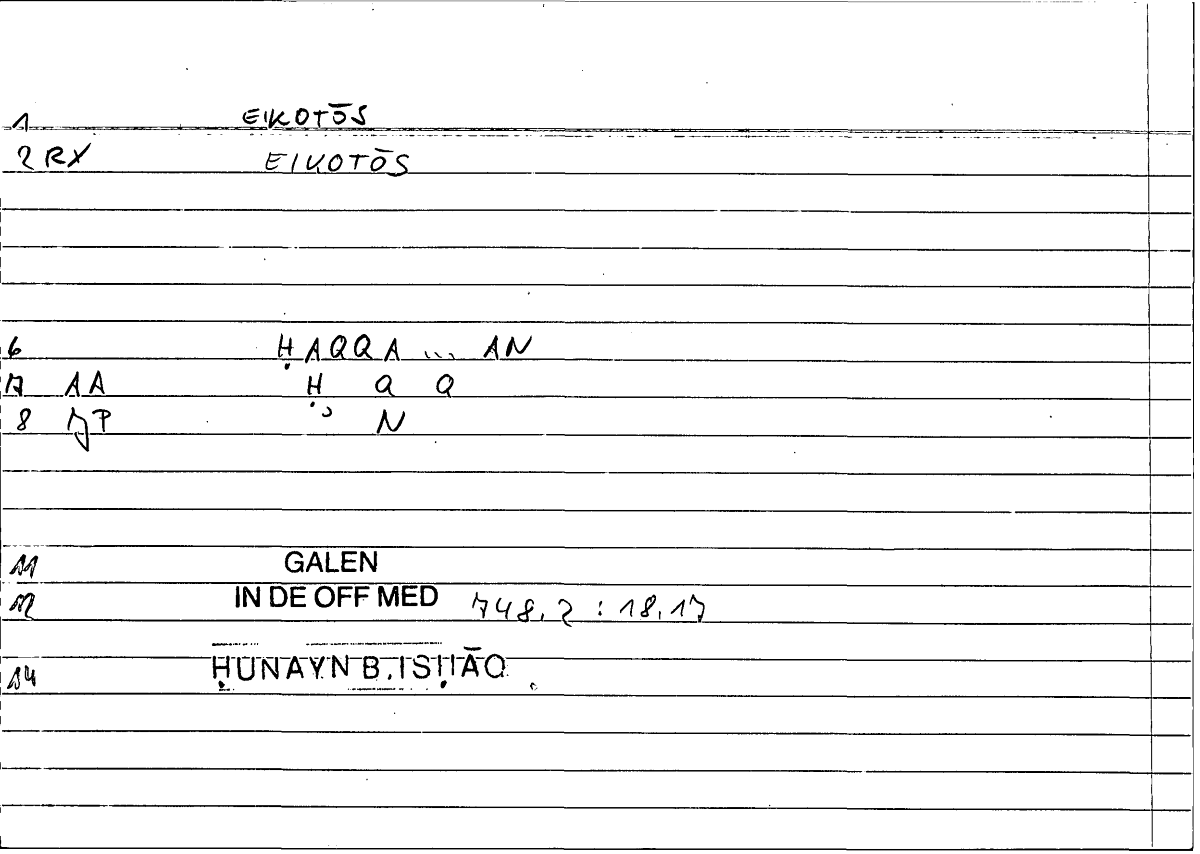 1 EIKOTŌS
2 RX EIKOTŌS
6 ḤAQQA ... AN
7 AA Ḥ Q Q
8 JP N
11 GALEN
12 IN DE OFF MED 748,2 : 18,17
14 ḤUNAYN B. ISḤĀQ